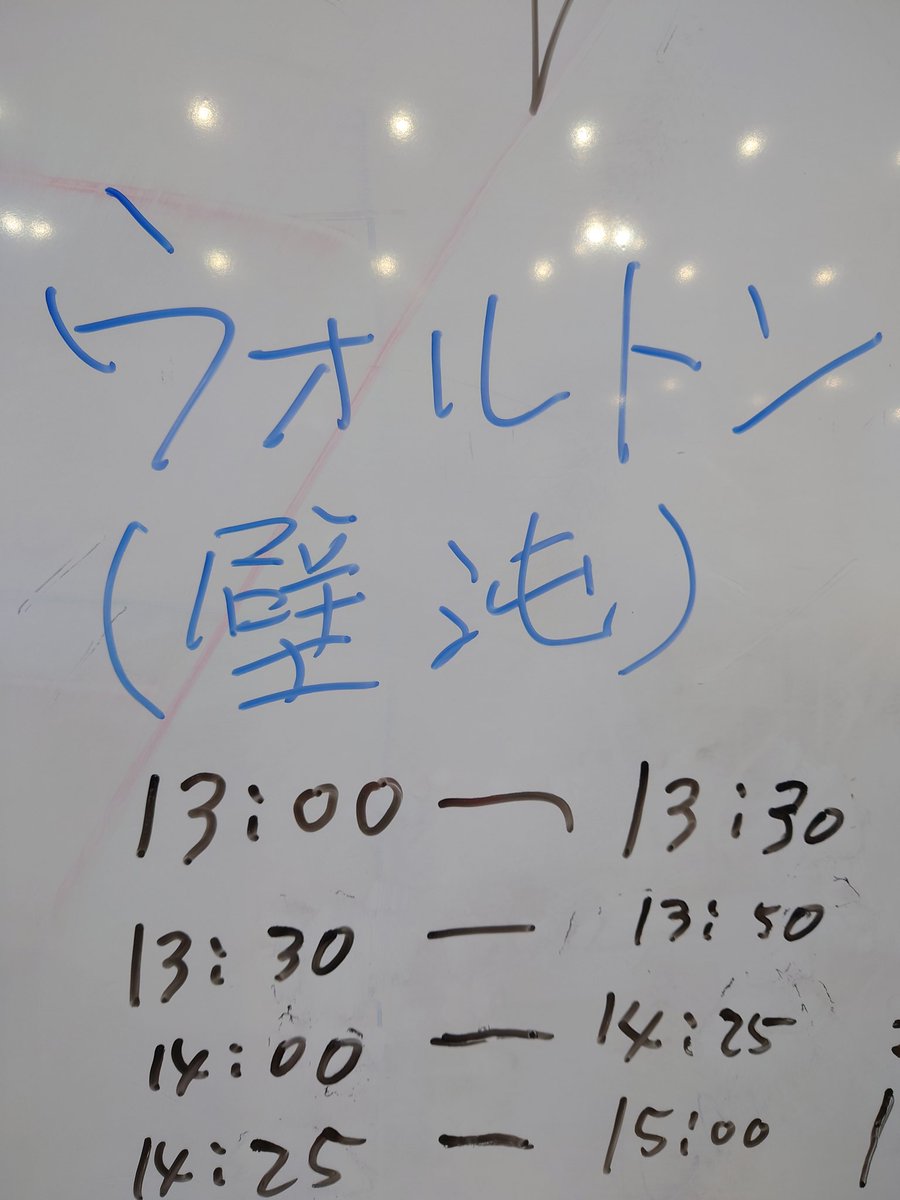 ウォルトン
(壁沌)
13:00 ー 13:30
13:30 ー 13:50
14:00 ー 14:25
14:25 ー 15:00